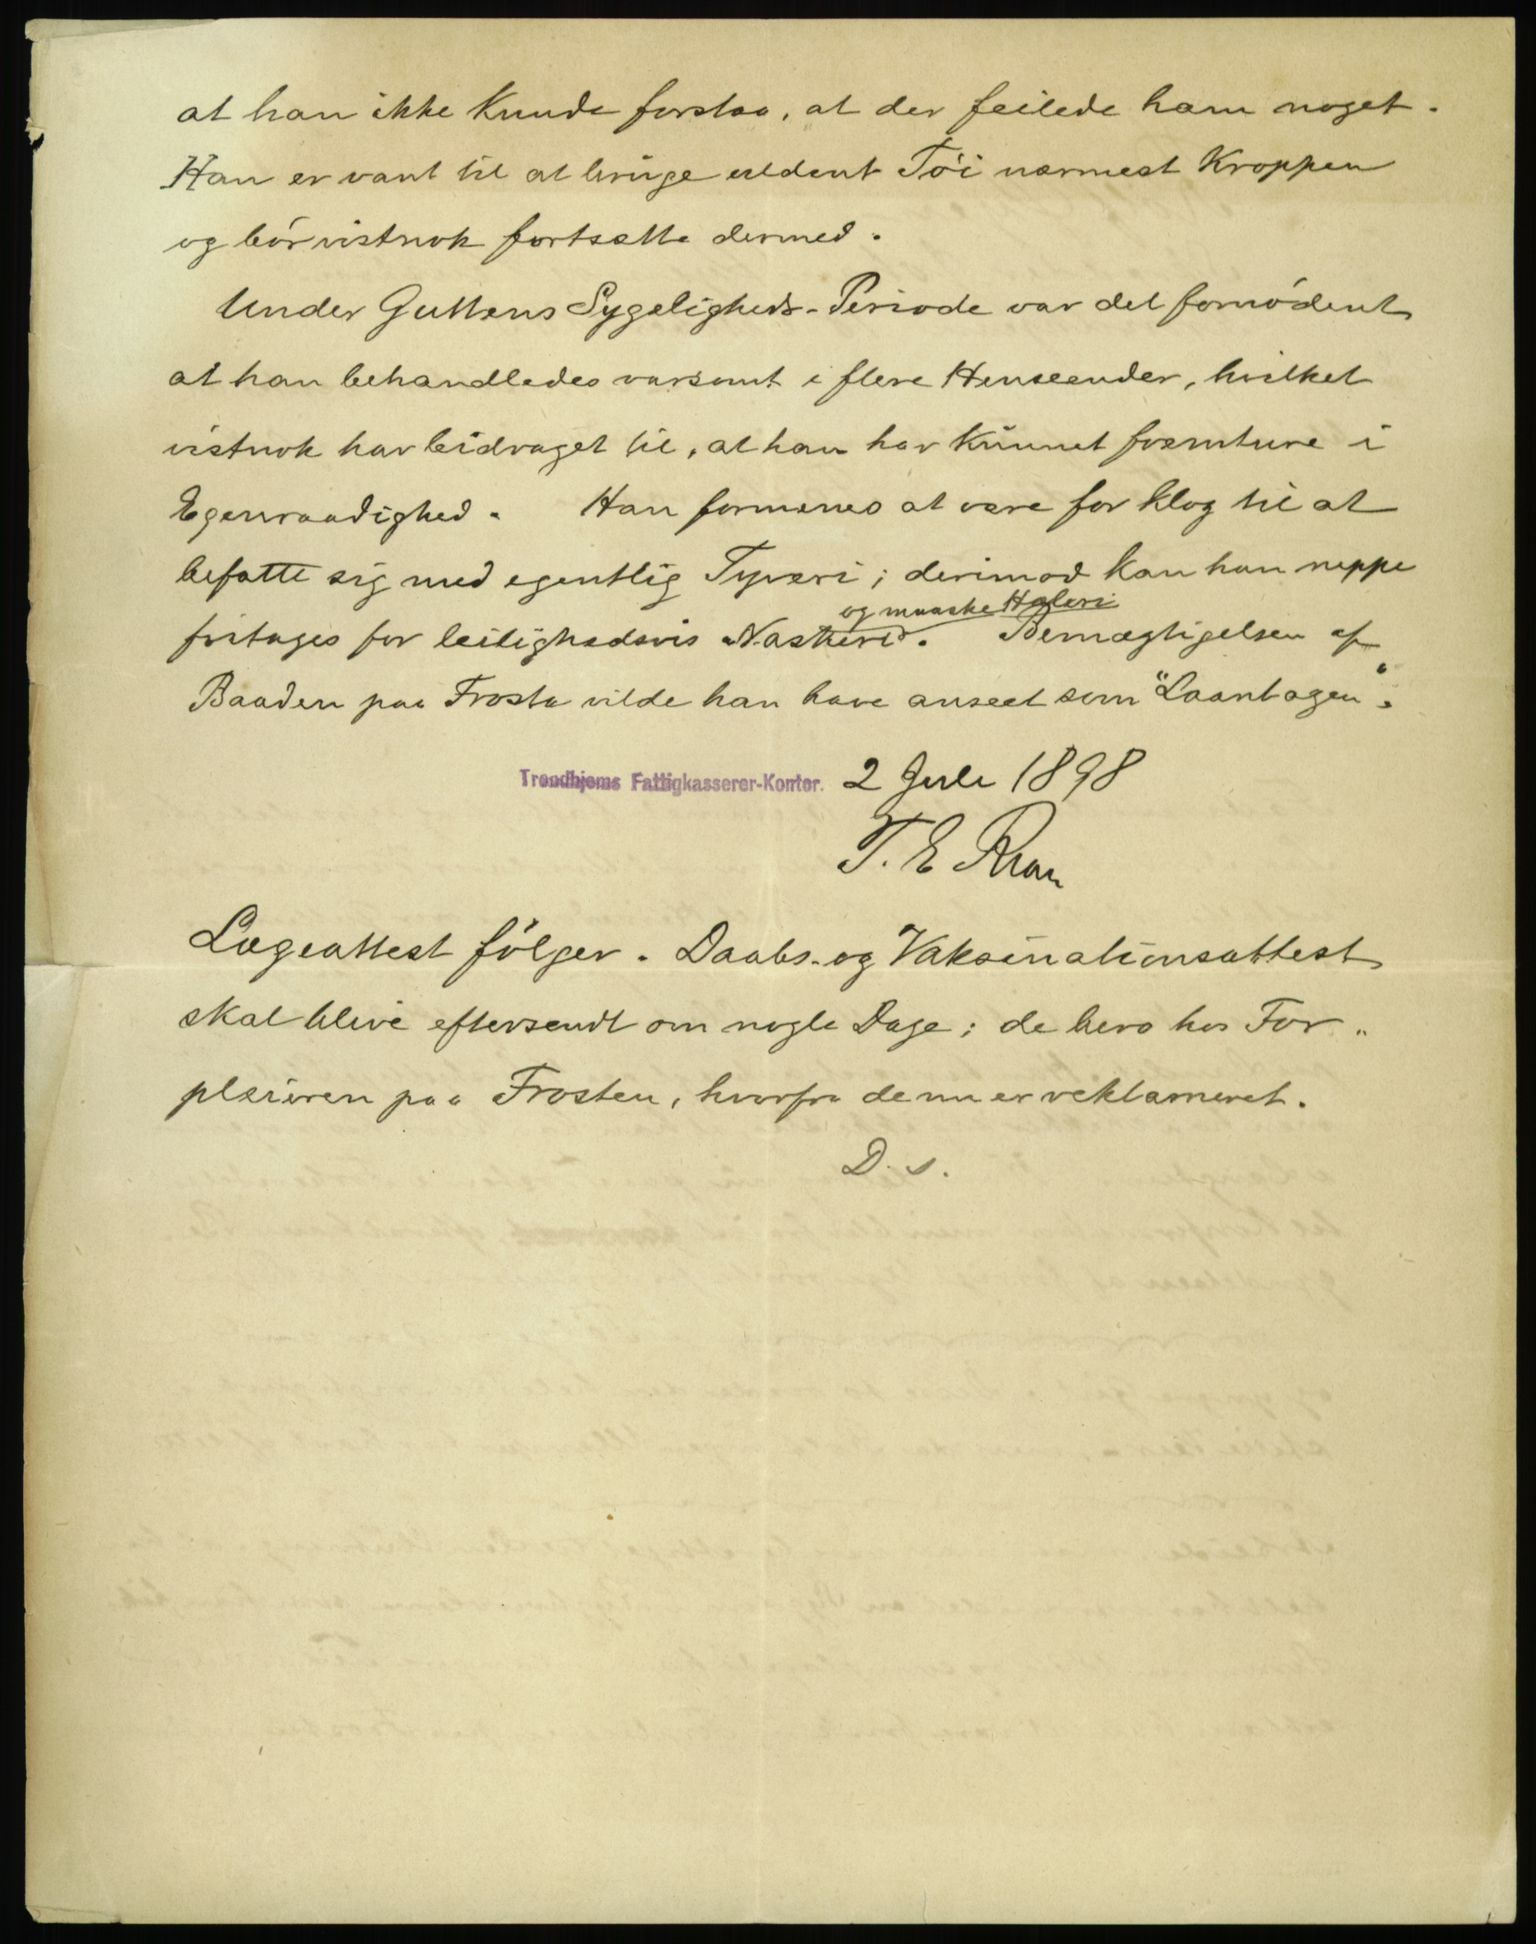 at han ikke kunde forstaa, at der feilede ham noget.
Han er vant til at bruge uldent Tói nærmest Kroppen
og bór vistnok fortsætte dermed.
Under Guttens Sygeligheds-Periode var det fornódent
at han behandledes varsomt i flere Henseender, hvilket
vistnok har bidraget til, at han har kunnet fremture i
Egenraadighed. Han formenes at være for klog til at
befatte sig med egentlig Tyveri; derimod kan han neppe
og maaske Hæleri
fritages for leilighedsvis Naskeri. Bemægtigelsen af
Baaden paa Frosta vilde han have anseet som "Laantagen".
Trondhjems Fattigkasserer-Kontor. 2 Juli 1898
T. E.
Lægeattest fólger. Daabs- og Vaksinationsattest
skal blive eftersendt om nogle Dage; de bero hos For„
pleieren paa Frosten, hvorfra de nu er reklameret.
D. s.